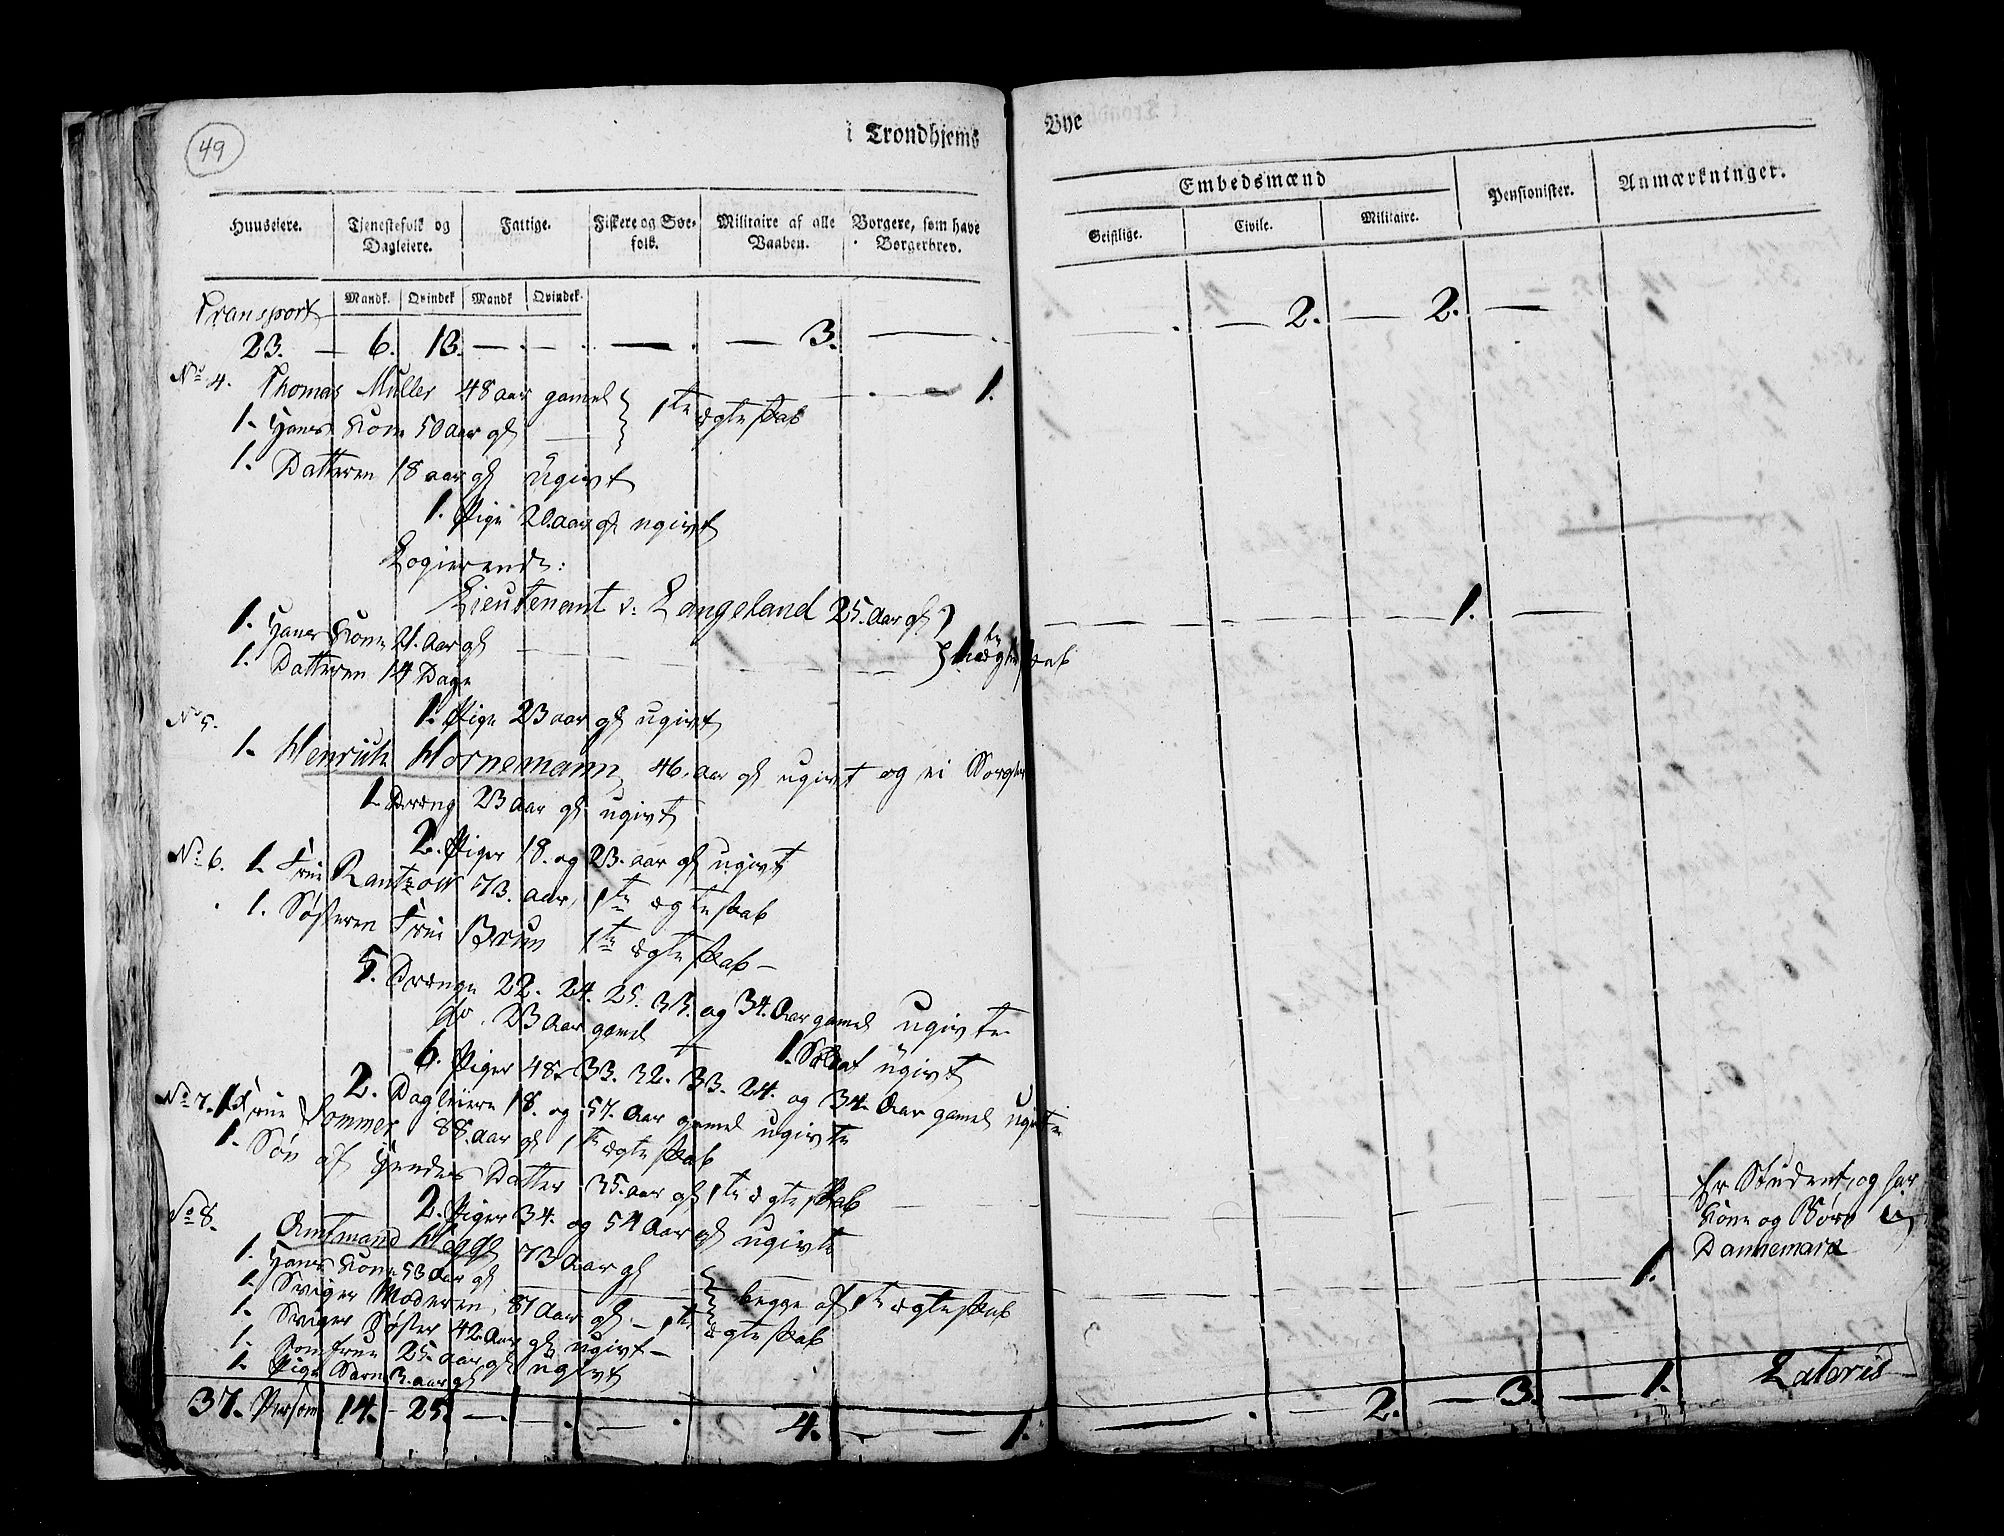 49
i Trondhjems Bye
Huuseiere. Tjenestefolk og Dagleiere. Fattige. Fiskere og Søefolk. Militaire af alle Vaaben. Borgere, som have Borgerbrev. Embedsmænd Pensionister. Anmærkninger.
Geistlige. Civile. Militaire.
Mandk. Qvindek Mandk Qvindek.
Transport
23. — 6. 13. — — — 3. — — 2. — 2. —
No 4. Thomas Müller 48 aar gamel 1.
1. Hans Kone 50 aar gl 1te ægteskab
1. Datteren 18 aar gl ugivt
1. Pige 20. aar gl ugivt
Logierende:
Lieutenant v: Langeland 25. aar gl 1.
1. Hans Kone 21. aar gl 1te ægteskab
1. Datteren 14 Dage
1. Pige 23 aar gl ugivt
No 5.
1. Henrich Hornemann 46. aar gl ugivt og ei Borger
1. Dreng 23 aar gl ugivt
2. Piger 18. og 23. aar gl ugivt
No 6. 1. Frue Rantzow 73. aar, 1te ægteskab
1. Søsteren Frue Brun 1te ægteskab —
5. Drenge 22. 24. 25. 33. og 34. Aar gamel ugivte
do. 23 Aar gamel 1. Soldat ugivt
6. Piger 48. 33. 32. 33. 24. og 34. Aar gamel ugivte
2. Dagleiere 18. og 57. Aar gamel ugivte
No 7. 1. Frue Sommer 88. aar gl 1te ægteskab
1. Søn af Hendes Datter 35. aar gl 1te ægteskab
Er Student, og har
Kone og Børn i
Dannemark
2. Piger 34. og 54 Aar gl ugivte
No 8. Amtmand 73 Aar gl 1.
1. Hans Kone 53 Aar gl begge af 1te ægteskab
1. Sviger Moderen, 87 Aar gl — 1te ægteskab
1. Sviger Søster 42. Aar gl ugivt —
1. Jomfrue 25. aar gl ugivt
1. Pige Barn 3. aar gl
37. Person 14. - 25. — — . — . 4. — 1. — . 2. — 3. — 1. Lateris